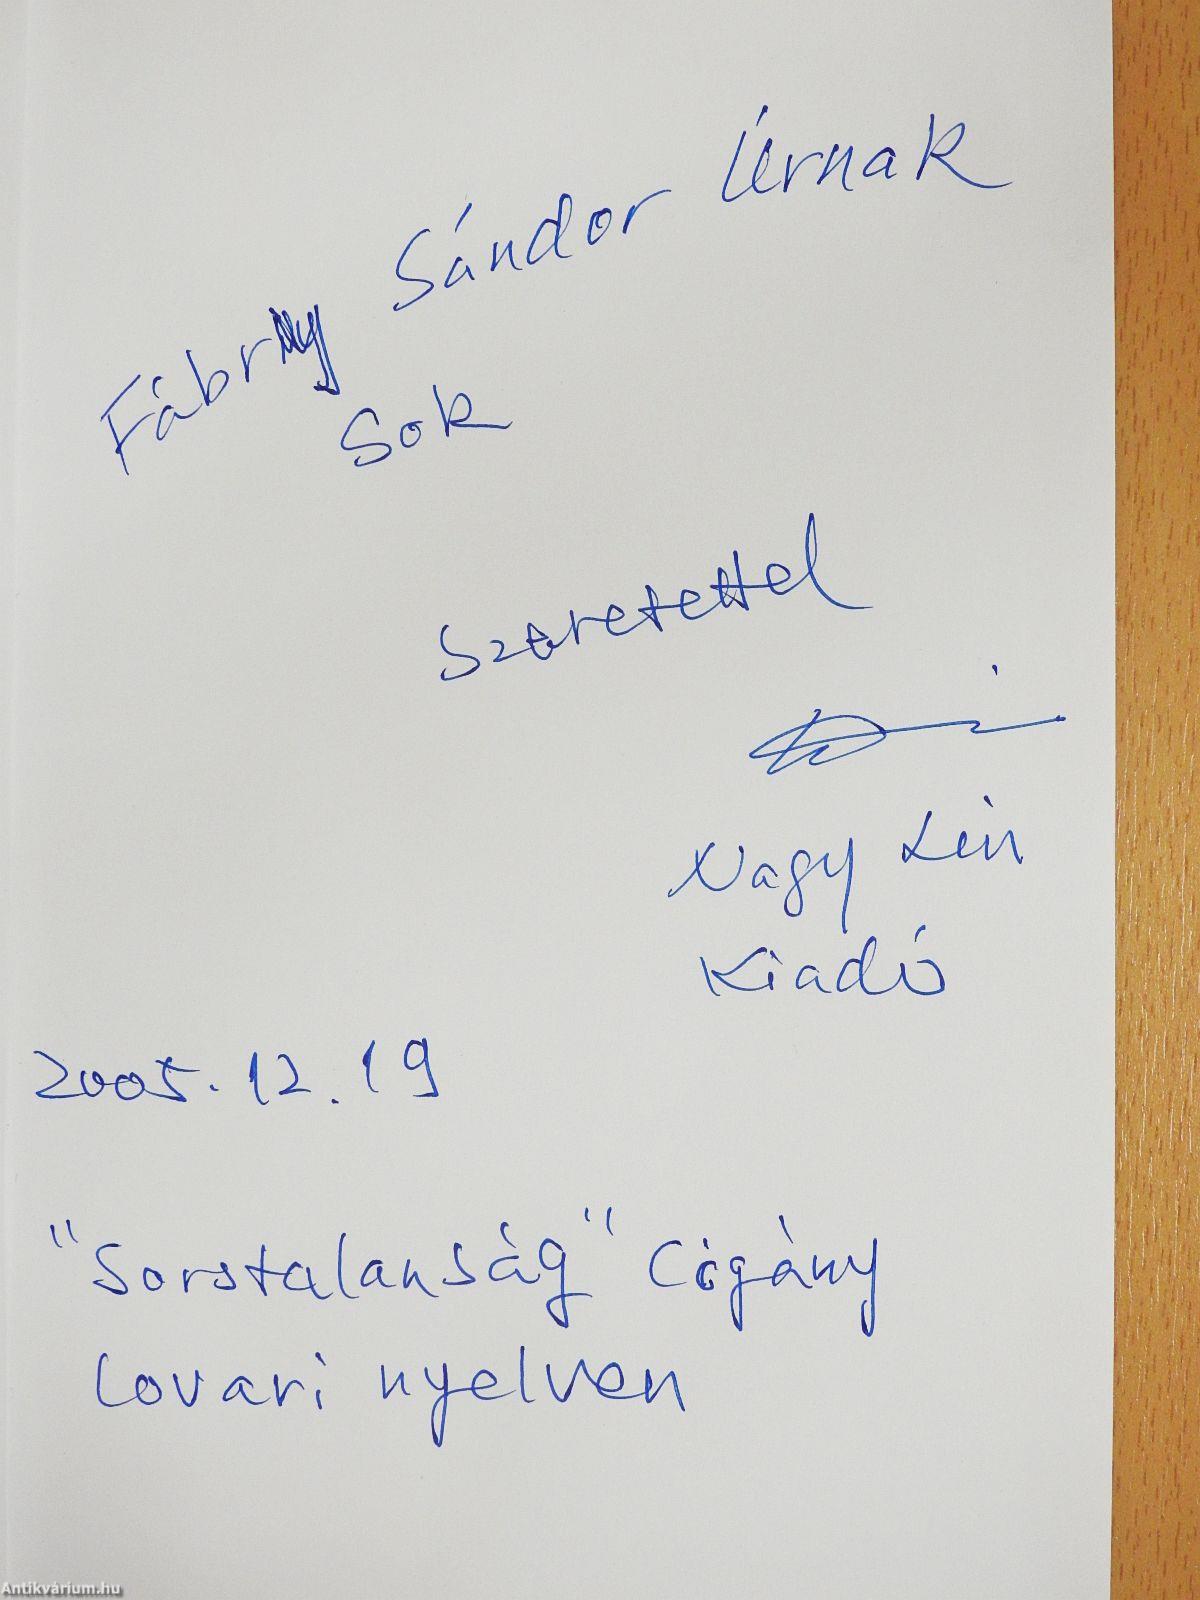 Fábrny Sándor Úrnak
Sok
Szeretettel
Nagy Lin
Kiadó
2005.12.19
"Sorstalanság" Cigány
Lovari nyelven
Antikvárium.hu